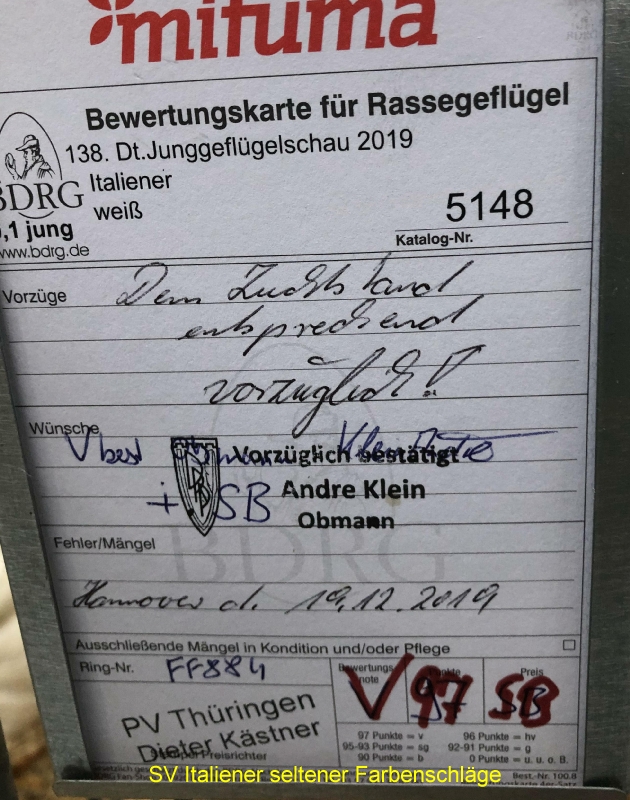 mifuma
Bewertungskarte für Rassegeflügel
138. Dt.Junggeflügelschau 2019
BDRG
Italiener
weiß
,1 jung
5148
Katalog-Nr.
www.bdrg.de
Vorzüge Dem Zuchtstand
entsprechend
vorzüglich!
Wünsche
V best
Vorzüglich bestätigt
+ SB
Andre Klein
Obmann
Fehler/Mängel
BDRG
Hannover d. 19.12.2019
Ausschließende Mängel in Kondition und/oder Pflege
Ring-Nr. FF884
Bewertungs
note
Punkte
Preis
V 97 SB
PV Thüringen
Dieter Kästner
Preisrichter
97 Punkte = v 96 Punkte = hv
95-93 Punkte = sg 92-91 Punkte = g
90 Punkte = b 0 Punkte = u. u. o. B.
Best.-Nr. 100.8
SV Italiener seltener Farbenschläge